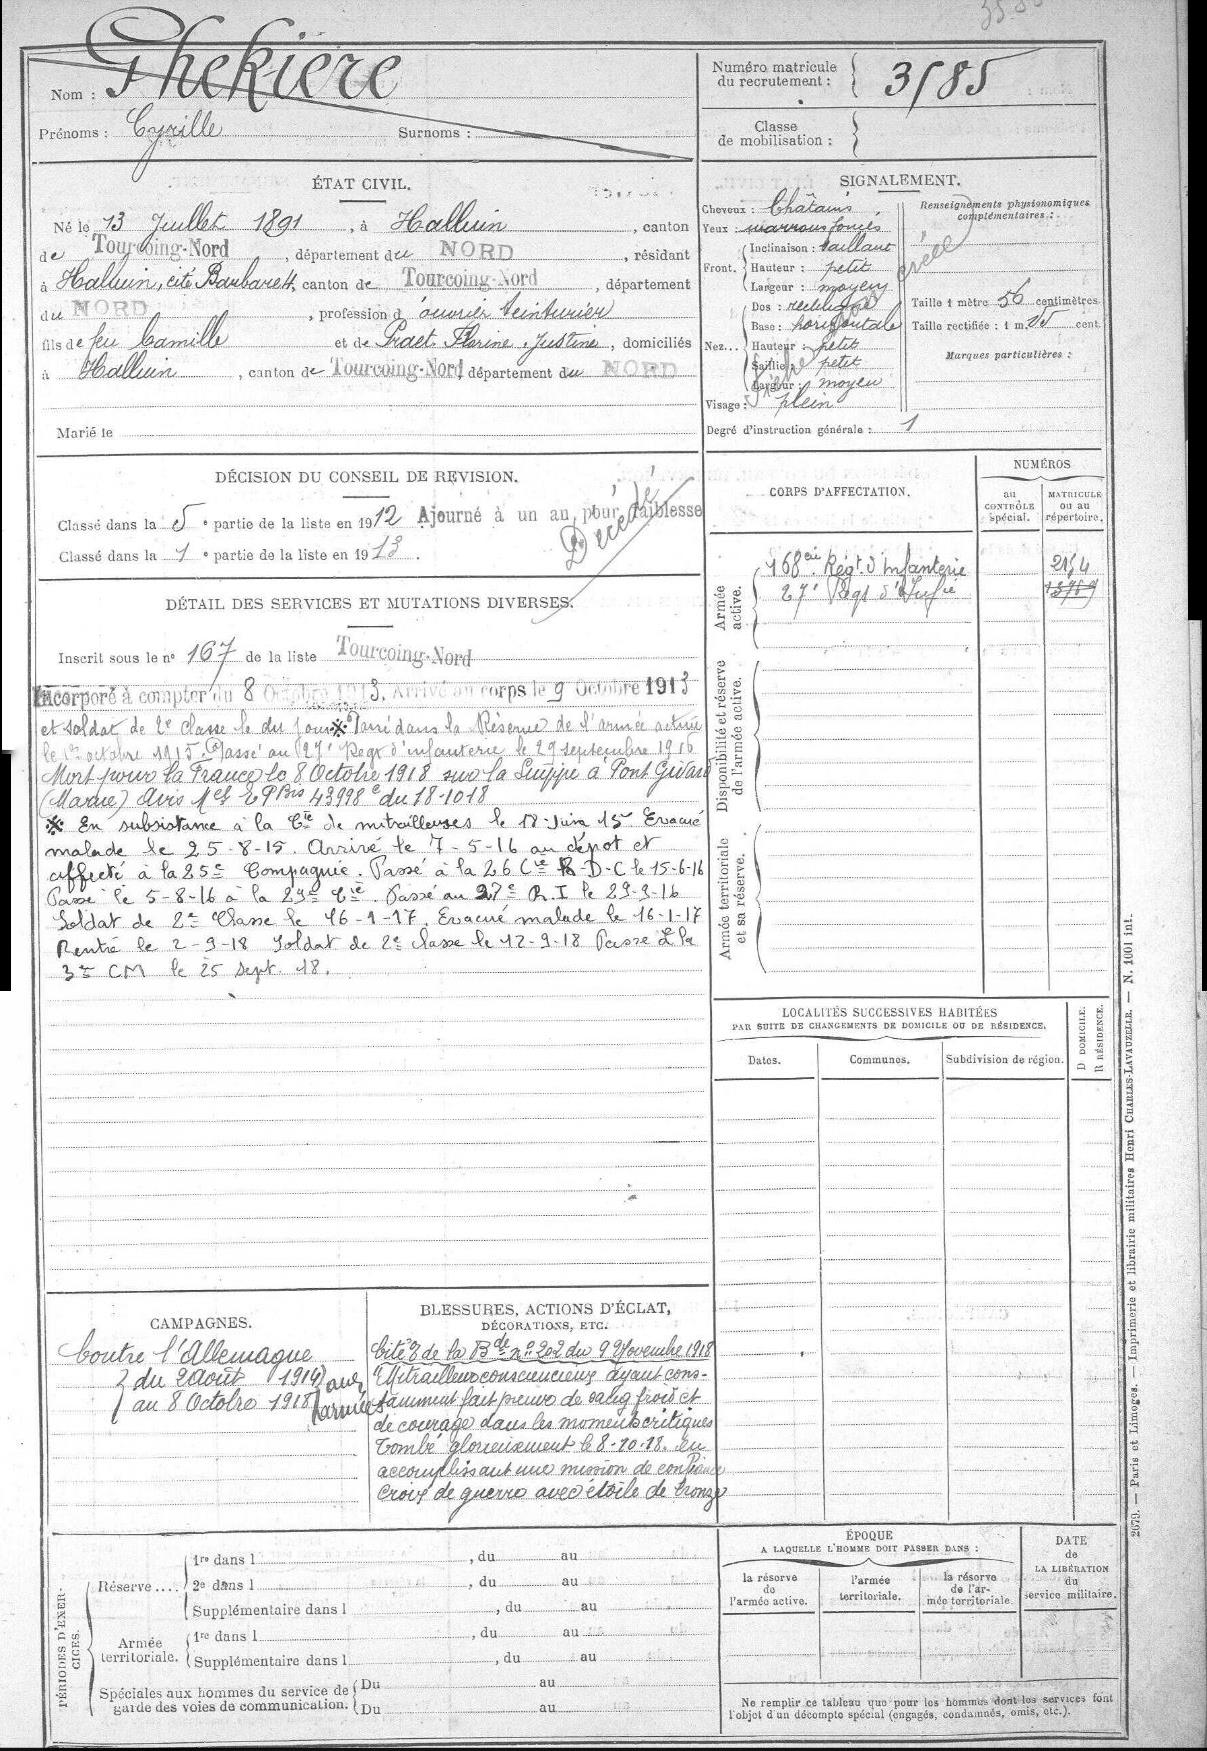 Nom : Ghekiére
Prénoms : Cyrille Surnoms :
Numéro matricule
du recrutement : 3585
Classe
de mobilisation :
ÉTAT CIVIL.
Né le 13 Juillet 1891, à Halluin, canton
de Tourcoing-Nord, département du NORD, résidant
à Halluin, cité Barbarett, canton de Tourcoing-Nord, département
du NORD, profession d'ouvrier teinturier
fils de feu Camille et de Praet Florine Justine, domiciliés
à Halluin, canton de Tourcoing-Nord, département du NORD
Marié le
SIGNALEMENT.
Cheveux : Châtains
Yeux : marrons foncés
Front. Inclinaison : saillant
Hauteur : petit
Largeur : moyen
Nez... Dos : rectiligne
Base : horizontale
Hauteur : petit
Saillie : petit
Largeur : moyen
Visage : plein
Renseignements physionomiques
complémentaires :
Taille 1 mètre 56 centimètres.
Taille rectifiée : 1 m. cent.
Marques particulières :
Degré d'instruction générale : 1
DÉCISION DU CONSEIL DE REVISION.
Classé dans la 5e partie de la liste en 1912 Ajourné à un an pour faiblesse
Classé dans la 1e partie de la liste en 1913.
Décédé
DÉTAIL DES SERVICES ET MUTATIONS DIVERSES.
Inscrit sous le no 167 de la liste Tourcoing-Nord
Incorporé à compter du 8 Octobre 1913. Arrivé au corps le 9 Octobre 1913
et soldat de 2e classe le du jour ※ Passé dans la Réserve de l'armée active
le 1er octobre 1915. Passé au 27e Regt d'infanterie le 29 septembre 1916
Mort pour la France le 8 Octobre 1918 sur la Suippe à Pont Givard
(Marne) Avis Mel 43998 du 18-10-18
※ En subsistance à la Cie de mitrailleuses le 18 Juin 15 Evacué
malade le 25-8-15. Arrivé le 7-5-16 au dépot et
affecté à la 25e Compagnie. Passé à la 26 Cie R-D-C le 15-6-16
Passé le 5-8-16 à la 29e Cie. Passé au 27e R.I le 29-9-16
Soldat de 2e Classe le 16-1-17. Evacué malade le 16-1-17
Rentré le 2-9-18 Soldat de 2e classe le 12-9-18 Passé à la
3e CM le 25 sept. 18.
CORPS D'AFFECTATION.
NUMÉROS
au
CONTRÔLE
spécial.
MATRICULE
ou au
répertoire.
Armée
active.
168eme Régt. d'Infanterie 2154
27e Regt d'Infie
Disponibilité et réserve
de l'armée active.
Armée territoriale
et sa réserve.
LOCALITÉS SUCCESSIVES HABITÉES
PAR SUITE DE CHANGEMENTS DE DOMICILE OU DE RÉSIDENCE.
Dates.
Communes.
Subdivision de région.
D DOMICILE.
R RÉSIDENCE.
CAMPAGNES.
Contre l'Allemagne
du 2 Août 1914 aux
au 8 Octobre 1918 armées
BLESSURES, ACTIONS D'ÉCLAT,
DÉCORATIONS, ETC.
Cité à l'O de la Bde no 202 du 9 Novembre 1918
Mitrailleur consciencieux ayant cons-
tamment fait preuve de sang froid et
de courage dans les moments critiques
Tombé glorieusement le 8-10-18. en
accomplissant une mission de confiance
Croix de guerre avec étoile de bronze
PÉRIODES D'EXER-
CICES.
Réserve.... 1re dans l , du au
2e dans l , du au
Supplémentaire dans l , du au
Armée
territoriale. 1re dans l , du au
Supplémentaire dans l , du au
Spéciales aux hommes du service de
garde des voies de communication. Du au
Du au
ÉPOQUE
A LAQUELLE L'HOMME DOIT PASSER DANS :
la réserve
de
l'armée active.
l'armée
territoriale.
la réserve
de l'ar-
mée territoriale
DATE
de
LA LIBÉRATION
du
service militaire.
Ne remplir ce tableau que pour les hommes dont les services font
l'objet d'un décompte spécial (engagés, condamnés, omis, etc.).
2679. — Paris et Limoges. — Imprimerie et librairie militaires Henri CHARLES-LAVAUZELLE. — N. 1001 int.